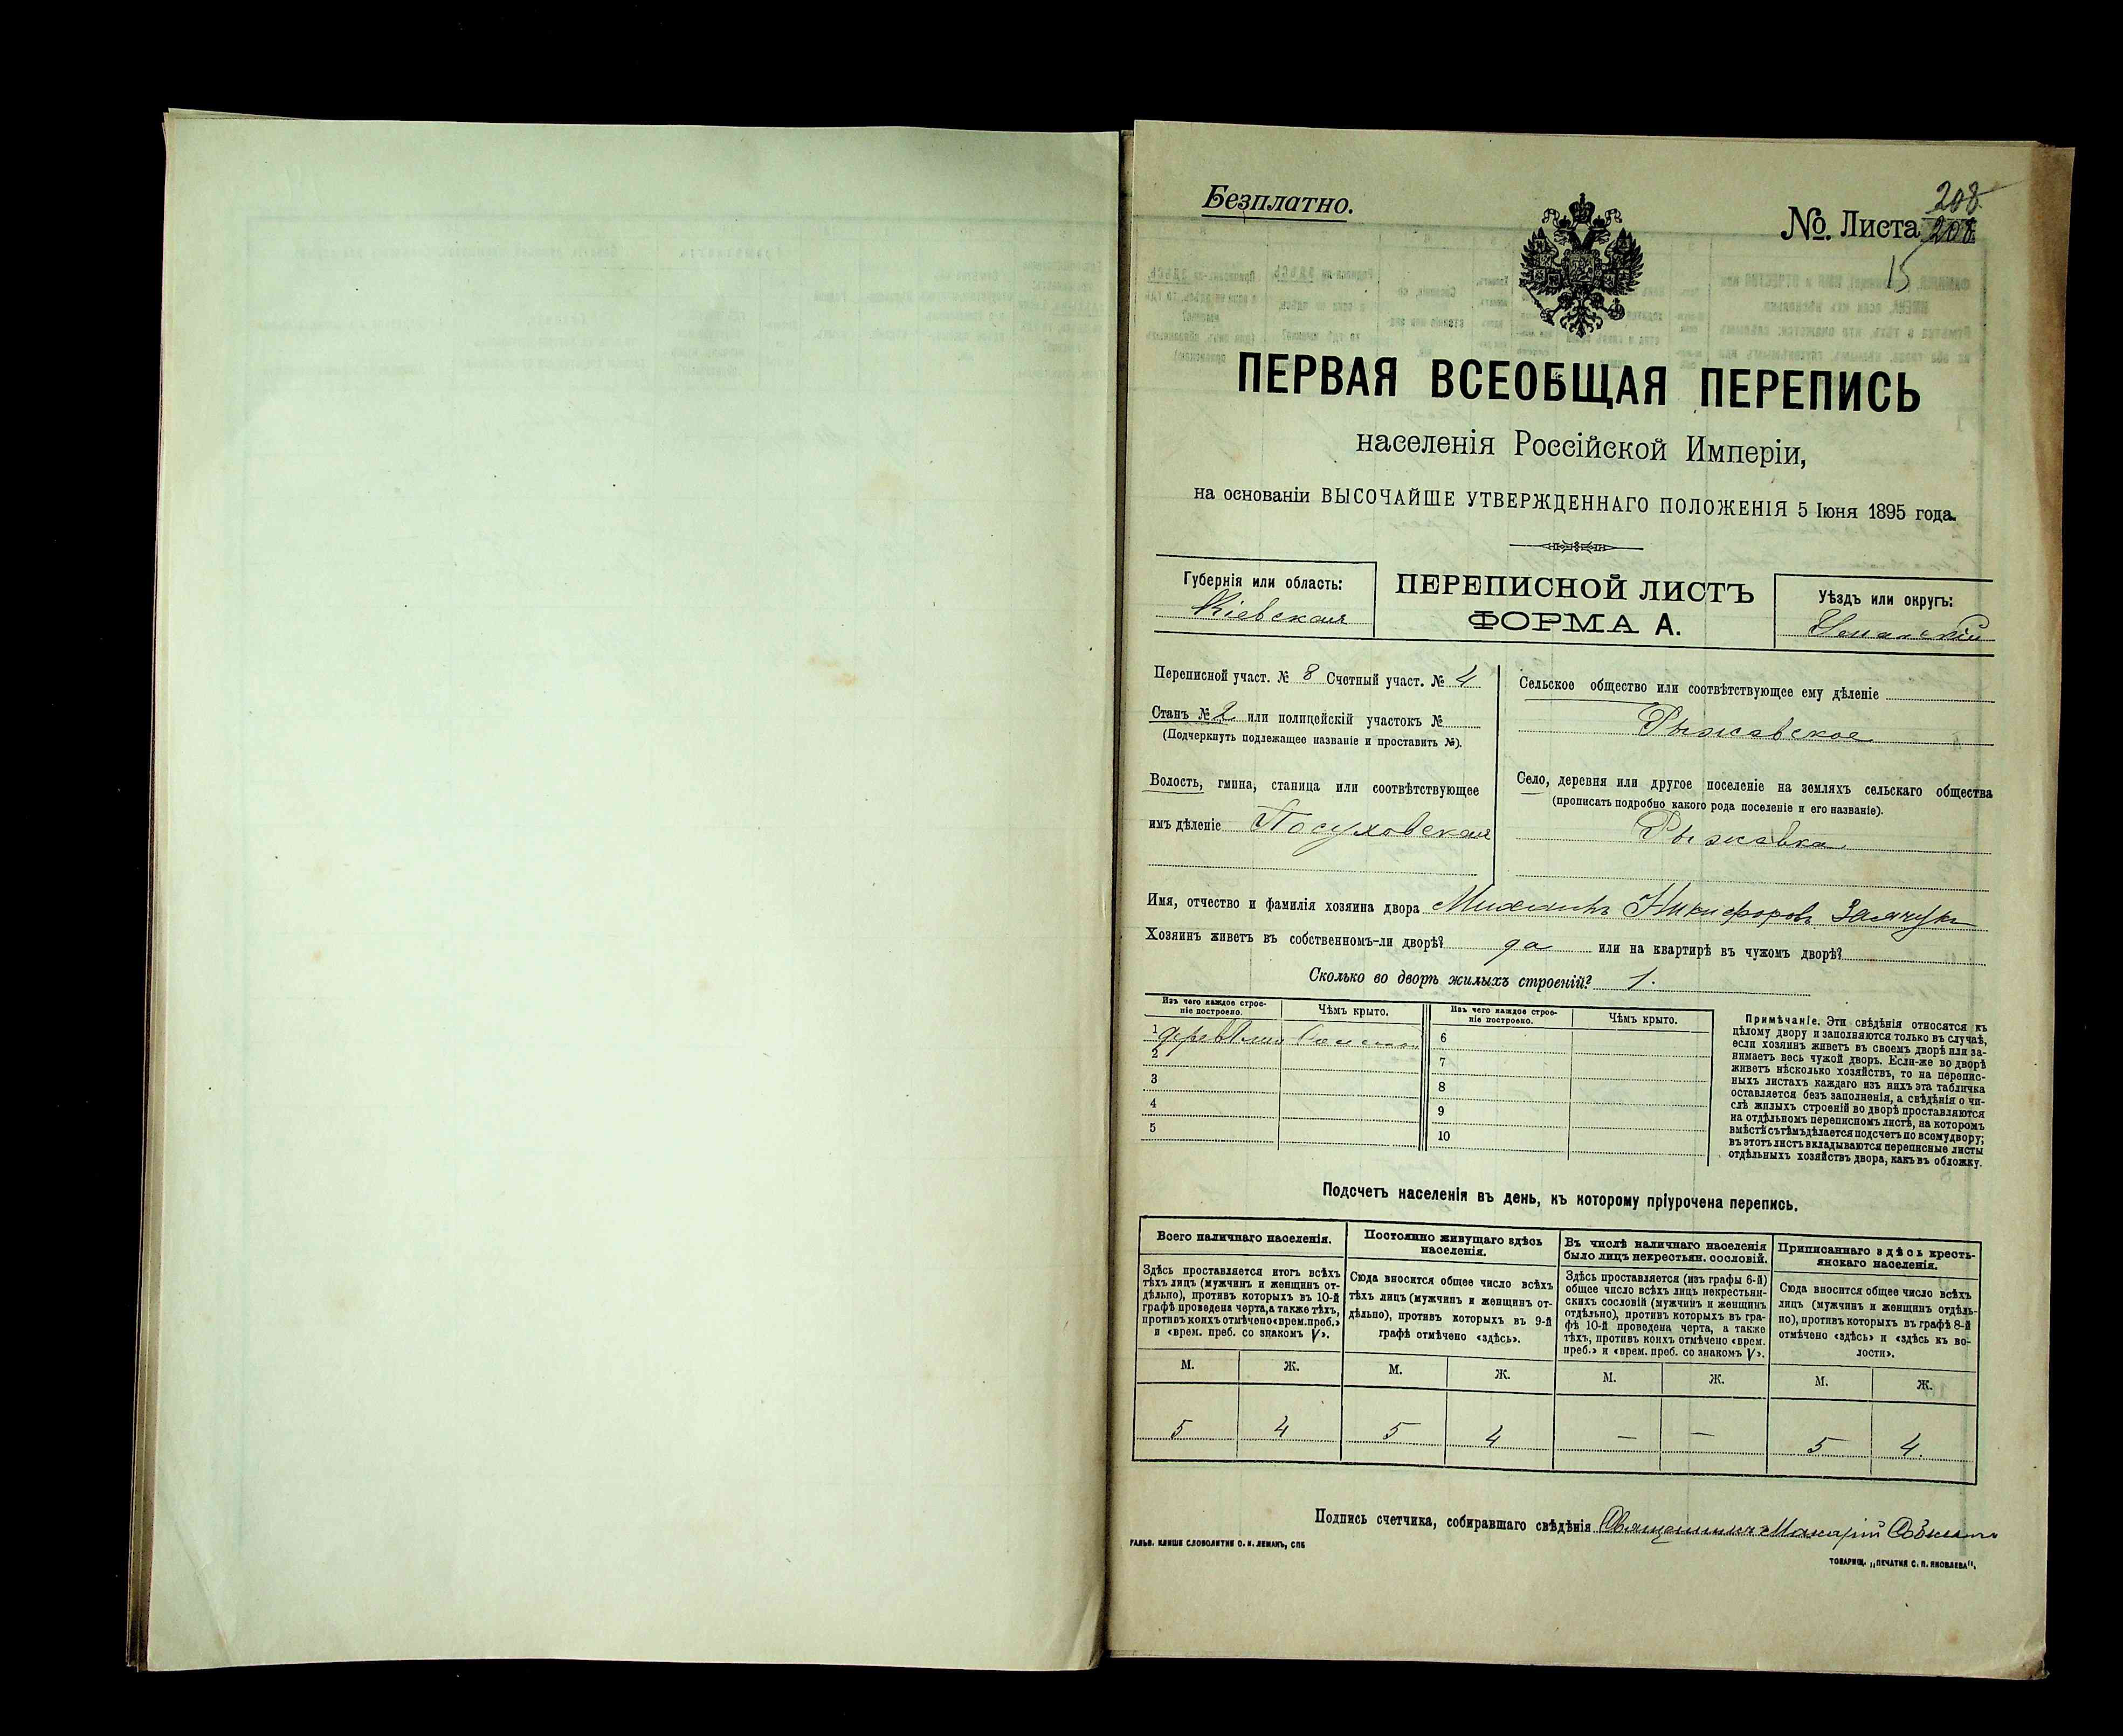 Безплатно.
208
№. Листа 208
15
ПЕРВАЯ ВСЕОБЩАЯ ПЕРЕПИСЬ
населенія Россійской Имперіи,
на основаніи ВЫСОЧАЙШЕ УТВЕРЖДЕННАГО ПОЛОЖЕНІЯ 5 Іюня 1895 года.
Губернія или область:
Кіевская
ПЕРЕПИСНОЙ ЛИСТЪ
ФОРМА А.
Уѣздъ или округъ:
Уманскій
Переписной участ. № 8 Счетный участ. № 4
Станъ № 2 или полицейскій участокъ №
(Подчеркнуть подлежащее названіе и проставить №).
Волость, гмина, станица или соотвѣтствующее
имъ дѣленіе Посуховская
Сельское общество или соотвѣтствующее ему дѣленіе
Рыжавское
Село, деревня или другое поселеніе на земляхъ сельскаго общества
(прописать подробно какого рода поселеніе и его названіе).
Рыжавка
Имя, отчество и фамилія хозяина двора Михаилъ Никифоровъ
Хозяинъ живетъ въ собственномъ-ли дворѣ? да или на квартирѣ въ чужомъ дворѣ?
Сколько во дворѣ жилыхъ строеній? 1.
Изъ чего каждое строе-
ніе построено.
Чѣмъ крыто.
Изъ чего каждое строе-
ніе построено.
Чѣмъ крыто.
1 6
2 7
3 8
4 9
5 10
Примѣчаніе. Эти свѣдѣнія относятся къ
цѣлому двору и заполняются только въ случаѣ,
если хозяинъ живетъ въ своемъ дворѣ или за-
нимаетъ весь чужой дворъ. Если-же во дворѣ
живетъ нѣсколько хозяйствъ, то на перепис-
ныхъ листахъ каждаго изъ нихъ эта табличка
оставляется безъ заполненія, а свѣдѣнія о чи-
слѣ жилыхъ строеній во дворѣ проставляются
на отдѣльномъ переписномъ листѣ, на которомъ
вмѣстѣ съ тѣмъ дѣлается подсчетъ по всему двору;
въ этотъ листъ вкладываются переписные листы
отдѣльныхъ хозяйствъ двора, какъ въ обложку.
Подсчетъ населенія въ день, къ которому пріурочена перепись.
Всего наличнаго населенія.
Здѣсь проставляется итогъ всѣхъ
тѣхъ лицъ (мужчинъ и женщинъ от-
дѣльно), противъ которыхъ въ 10-й
графѣ проведена черта, а также тѣхъ,
противъ коихъ отмѣчено «врем. преб.»
и «врем. преб. со знакомъ V».
Постоянно живущаго здѣсь
населенія.
Сюда вносится общее число всѣхъ
тѣхъ лицъ (мужчинъ и женщинъ от-
дѣльно), противъ которыхъ въ 9-й
графѣ отмѣчено «здѣсь».
Въ числѣ наличнаго населенія
было лицъ некрестьян. сословій.
Здѣсь проставляется (изъ графы 6-й)
общее число всѣхъ лицъ некрестьян-
скихъ сословій (мужчинъ и женщинъ
отдѣльно), противъ которыхъ въ гра-
фѣ 10-й проведена черта, а также
тѣхъ, противъ коихъ отмѣчено «врем.
преб.» и «врем. преб. со знакомъ V».
Приписаннаго здѣсь кресть-
янскаго населенія.
Сюда вносится общее число всѣхъ
лицъ (мужчинъ и женщинъ отдѣль-
но), противъ которыхъ въ графѣ 8-й
отмѣчено «здѣсь» и «здѣсь къ во-
лости».
М. Ж. М. Ж. М. Ж. М. Ж.
5 4 5 4 — — 5 4.
Подпись счетчика, собиравшаго свѣдѣнія Священникъ Макарій
ГАЛЬВ. КЛИШЕ СЛОВОЛИТНИ О. И. ЛЕМАНЪ, СПБ
ТОВАРИЩ. „ПЕЧАТНЯ С. П. ЯКОВЛЕВА".